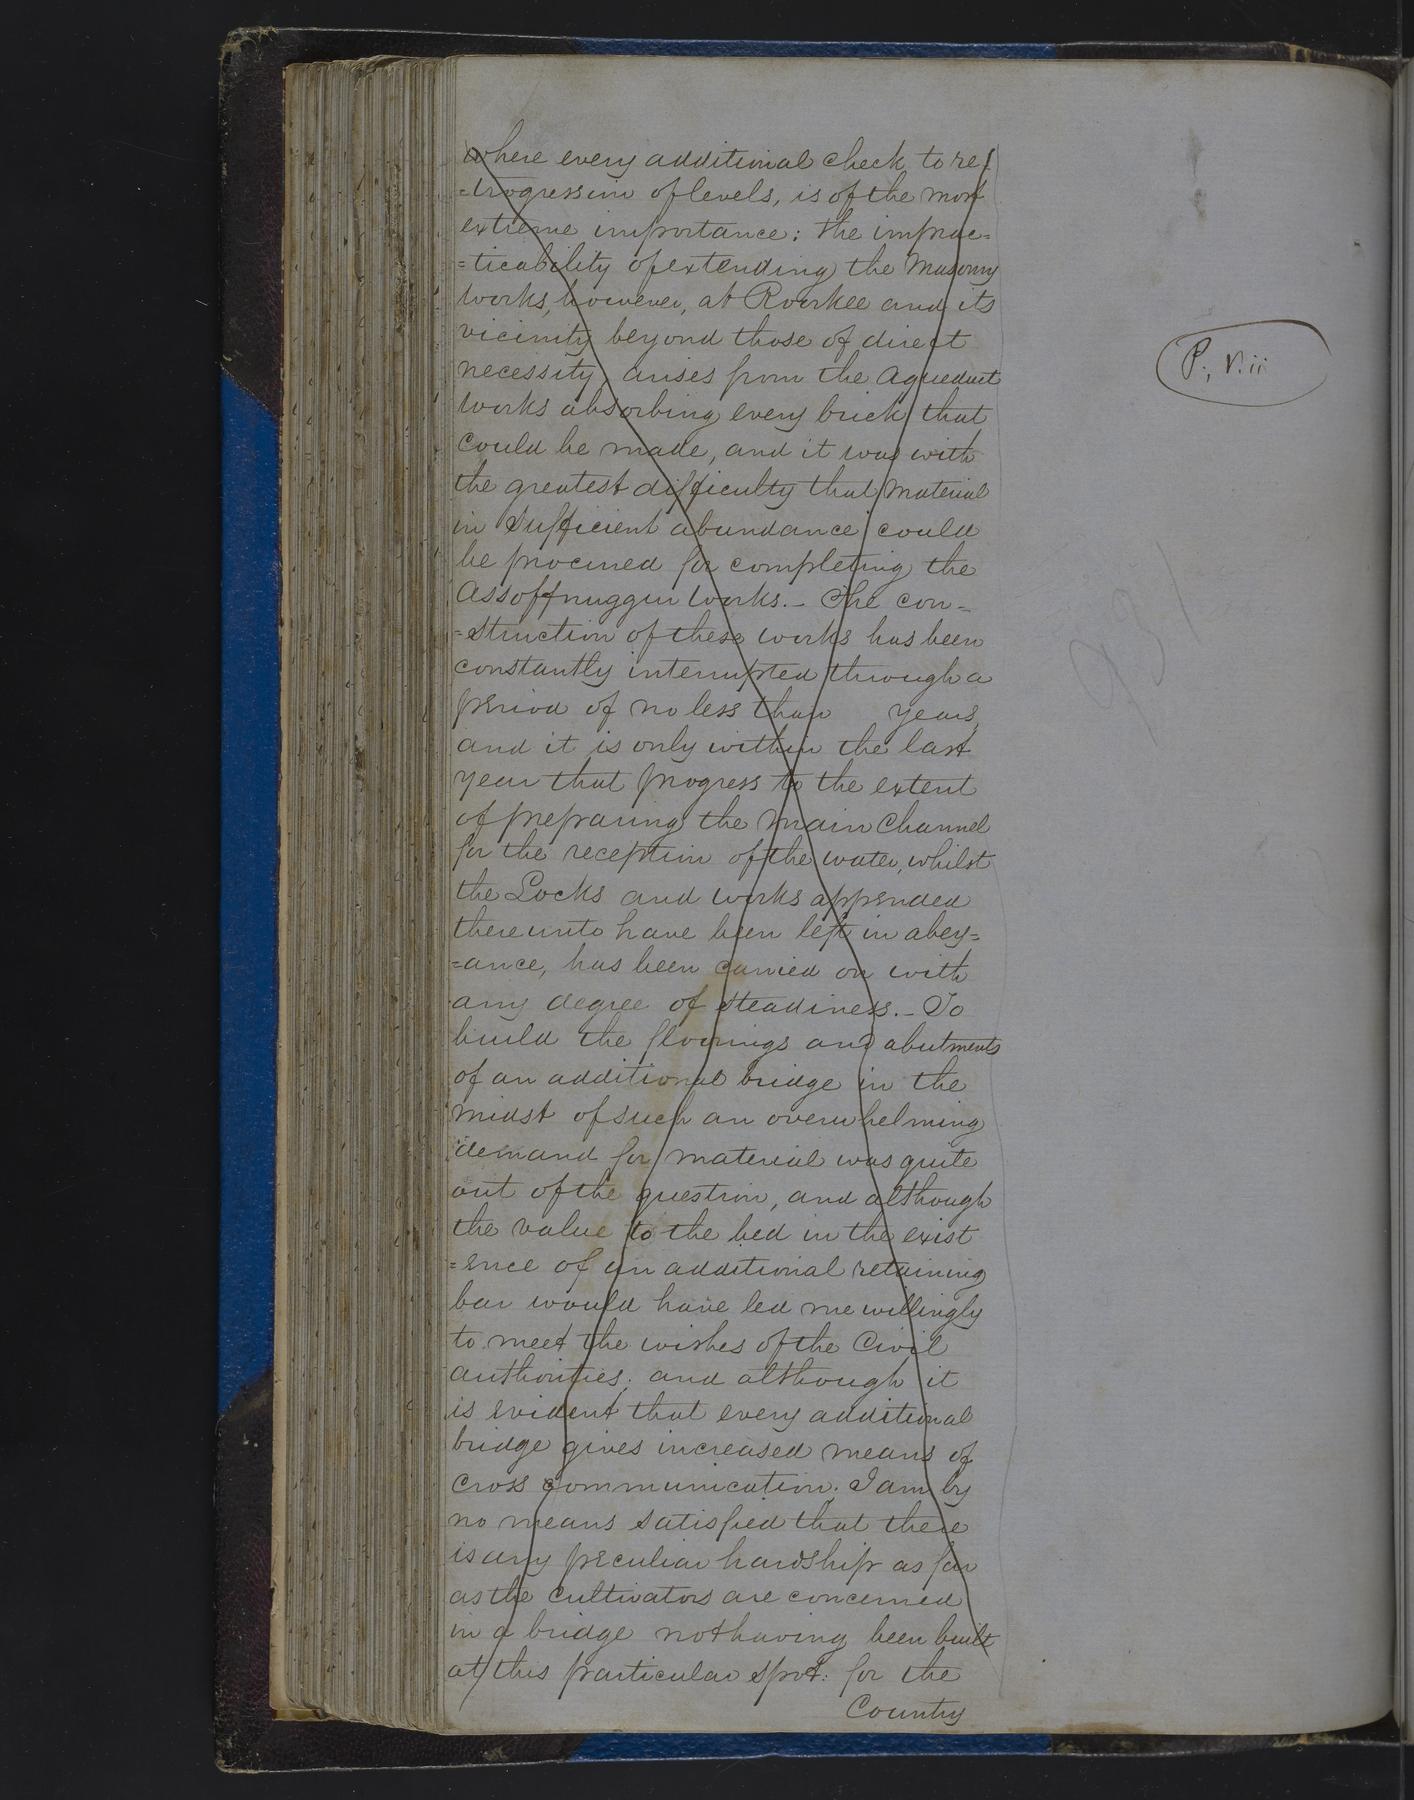 where every additional check to re=
=trogression of levels, is of the most
extreme importance: the imprac=
=ticability of extending the Masonry
works, however, at Roorkee and its
vicinity beyond those of direct
necessity, arises from the Aqueduct
works absorbing every brick that
could be made, and it was with
the greatest difficulty that material
in sufficient abundance could
be procured for completing the
Assoffnuggur works._ The con=
=struction of these works has been
constantly interrupted through a
period of no less than years,
and it is only within the last
year that progress to the extent
of preparing the main Channel
for the reception of the water, whilst
the Locks and works appended
thereunto have been left in abey=
=ance, has been carried on with
any degree of steadiness._ To
build the floorings and abutments
of an additional bridge in the
midst of such an overwhelming
demand for material was quite
out of the question, and although
the value to the bed in the exist
=ence of an additional retaining
bar would have led me willingly
to meet the wishes of the Civil
authorities; and although it
is evident that every additional
bridge gives increased means of
cross communication. I am by
no means satisfied that there
is any peculiar hardship as far
as the Cultivators are concerned
in a bridge not having been built
at this particular spot: for the
Country
P. viii
931